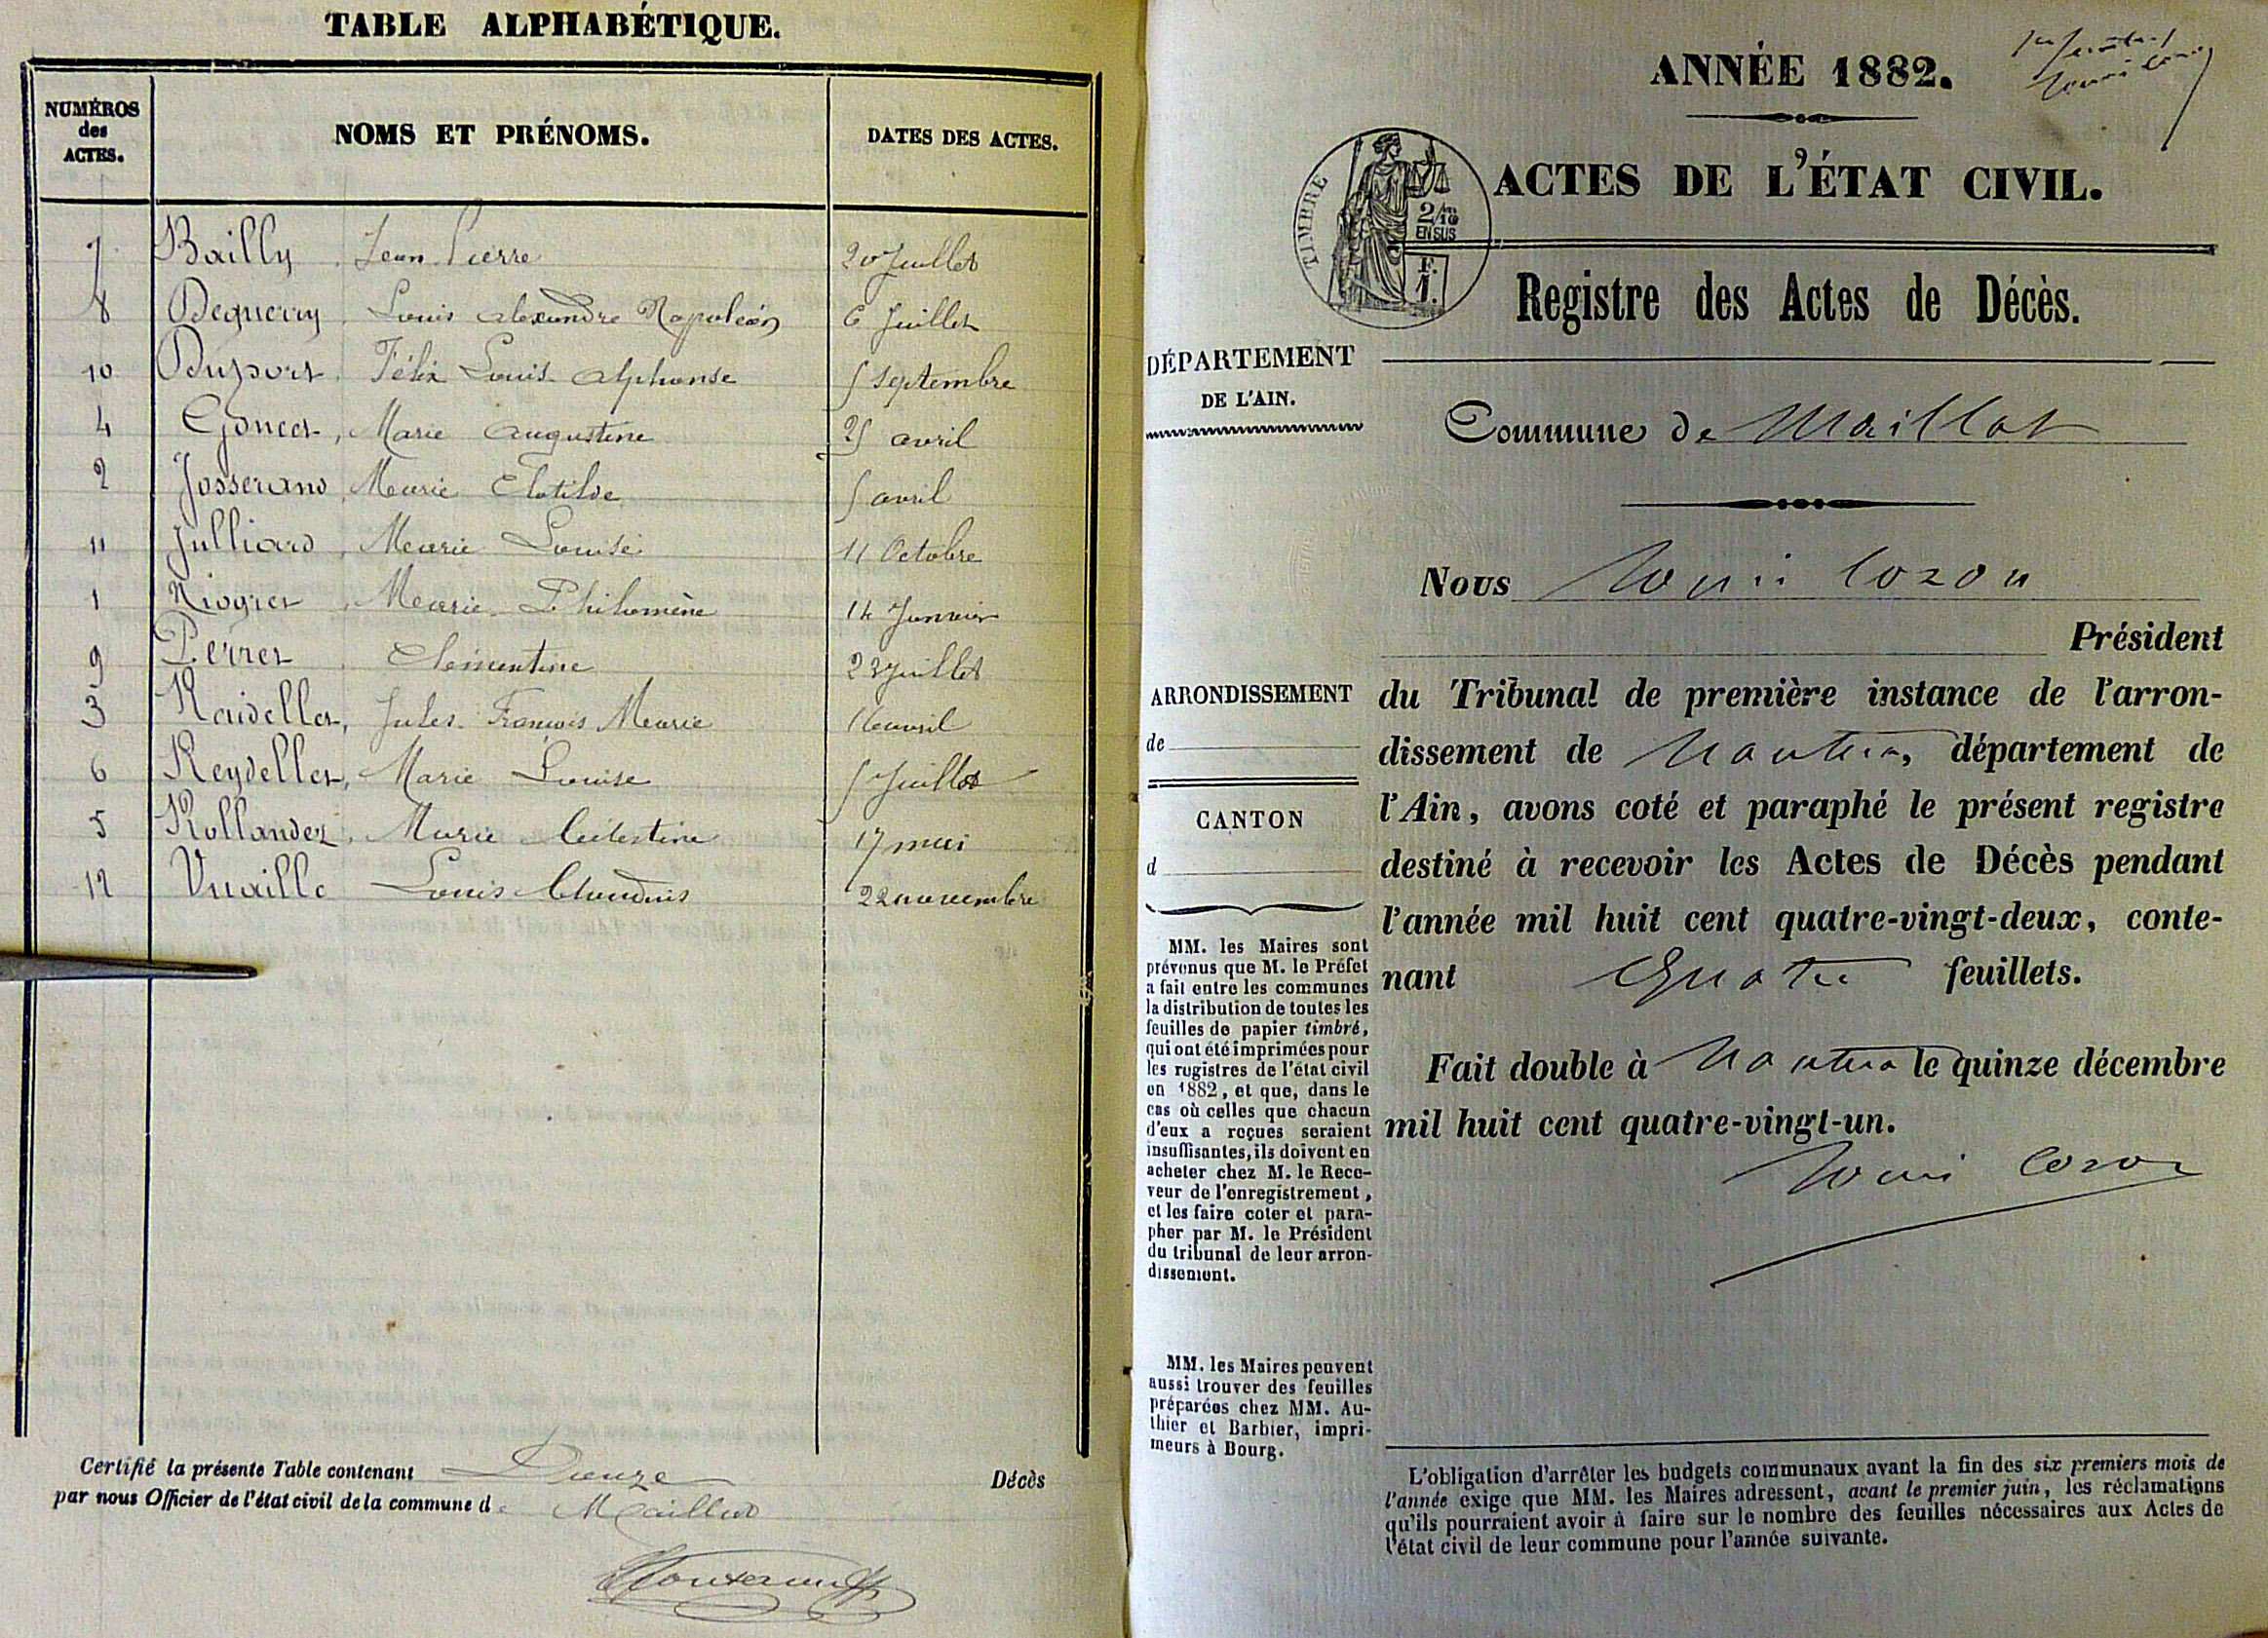 TABLE ALPHABÉTIQUE.
NUMÉROS des ACTES.
NOMS ET PRÉNOMS.
DATES DES ACTES.
7 Bailly Jean Pierre 20 Juillet
8 Deguerry Louis alexandre Napoléon 6 Juillet
10 Duport Félix Louis alphonse 5 septembre
4 Goncet, Marie augustine 25 avril
2 Josserand, Marie Clotilde 5 avril
11 Julliard, Marie Louise 11 Octobre
1 Niogret, Marie Philomène 14 Janvier
9 Perret Clémentine 22 juillet
3 Reidellet, Jules François Marie 16 avril
6 Reydellet, Marie Louise 5 Juillet
5 Rollandez, Marie Célestine 17 mai
12 Vuaille Louis Claudius 22 novembre
Certifié la présente Table contenant Douze Décès
par nous Officier de l'état civil de la commune de Maillat
ANNÉE 1882.
ACTES DE L'ÉTAT CIVIL.
TIMBRE
2/10
EN SUS
F.
1.
Registre des Actes de Décès.
DÉPARTEMENT
DE L'AIN.
Commune de Maillat
Nous Louis Cozon
Président
ARRONDISSEMENT
de
CANTON
d
du Tribunal de première instance de l'arron-
dissement de Nantua, département de
l'Ain, avons coté et paraphé le présent registre
destiné à recevoir les Actes de Décès pendant
l'année mil huit cent quatre-vingt-deux, conte-
nant Quatre feuillets.
Fait double à Nantua le quinze décembre
mil huit cent quatre-vingt-un.
Louis Cozon
MM. les Maires sont
prévenus que M. le Préfet
a fait entre les communes
la distribution de toutes les
feuilles de papier timbré,
qui ont été imprimées pour
les registres de l'état civil
en 1882, et que, dans le
cas où celles que chacun
d'eux a reçues seraient
insuffisantes, ils doivent en
acheter chez M. le Rece-
veur de l'enregistrement,
et les faire coter et para-
pher par M. le Président
du tribunal de leur arron-
dissement.
MM. les Maires peuvent
aussi trouver des feuilles
préparées chez MM. Au-
thier et Barbier, impri-
meurs à Bourg.
L'obligation d'arrêter les budgets communaux avant la fin des six premiers mois de
l'année exige que MM. les Maires adressent, avant le premier juin, les réclamations
qu'ils pourraient avoir à faire sur le nombre des feuilles nécessaires aux Actes de
l'état civil de leur commune pour l'année suivante.